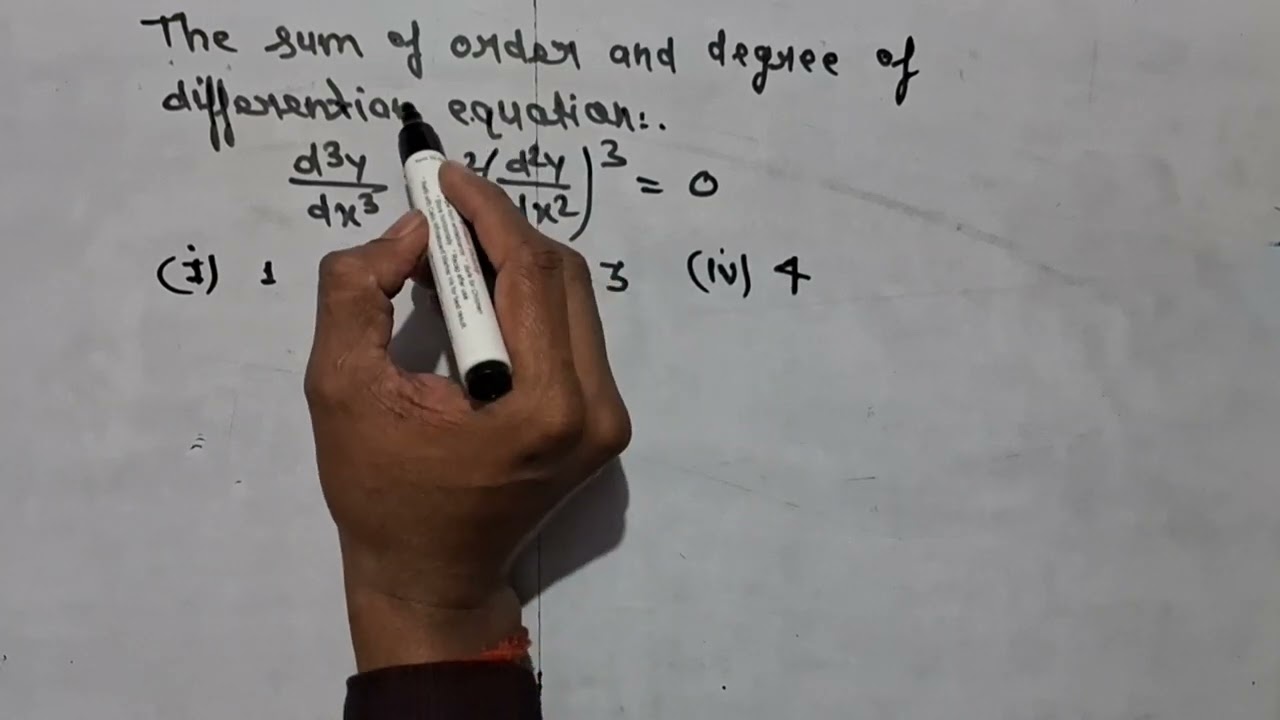 The sum of order and degree of
differention equation:.
d³y/dx³ ²(d²y/dx²)³ = 0
(i) 1 3 (iv) 4